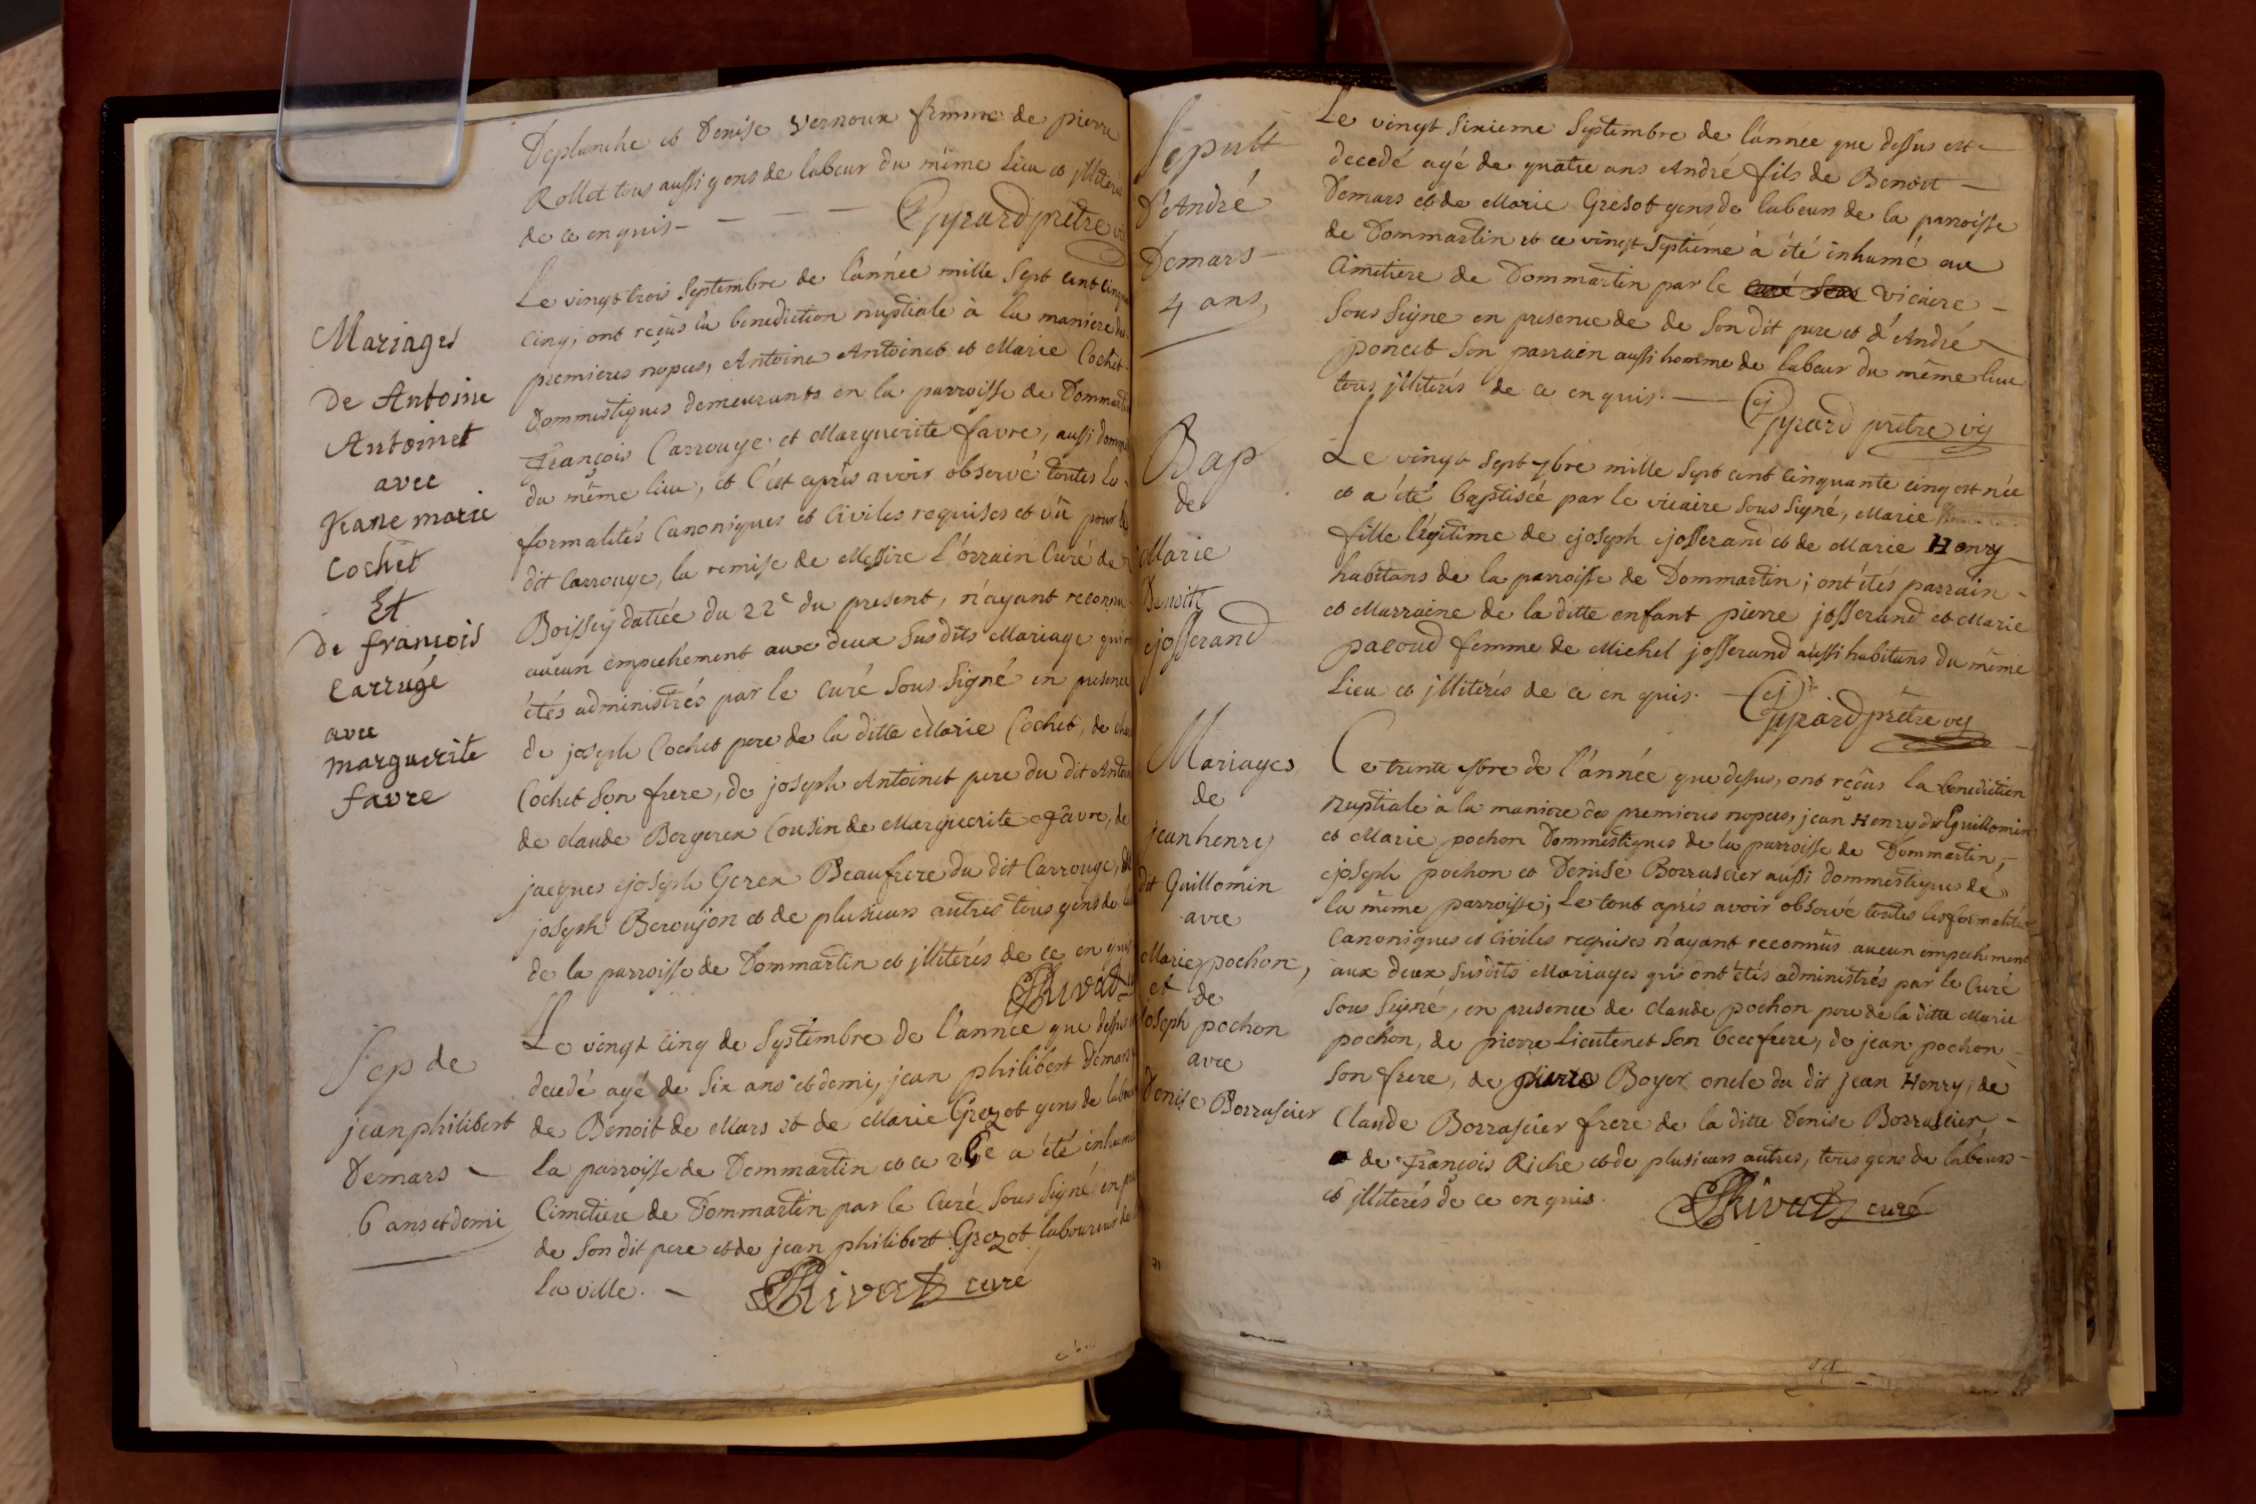 Deplanche et Denise Vernoux femme de pierre
Rollet tous aussi gens de labeur du même Lieu et jlliterés
de ce enquis — — — — Gyrard prêtre
Mariages
De Antoine
Antoinet
avec
Jeane marie
Cochet
Et
De françois
Carrugé
avec
marguerite
favre
Le vingt trois Septembre de l'année mille Sept cent cinqu
cinq; ont reçus la benediction nuptiale à la maniere des
premieres nopces, Antoine Antoinet et Marie Cochet
Dommestiques demeurants en la parroisse de Dommart
François Carrouge et Marguerite favre, aussi dommes
du même lieu, et C'est après avoir observé toutes les
formalités Canoniques et Civiles requises et vû pour le
dit Carrouge, la remise de Messire l'orrain Curé de
Boissey dattée du 22e du present, n'ayant reconnu
aucun empechement aux deux Susdits Mariage qui
étés administrés par le Curé Sous Signé en presence
de joseph Cochet pere de la ditte Marie Cochet, de
Cochet Son frere, de joseph Antoinet pere du dit Antoi
de claude Bergeren Cousin de Marguerite favre, de
jacques joseph Geren Beaufrere du dit Carrouge, de
joseph Beroujon et de plusieurs autres tous gens de la
de la parroisse de Dommartin et jlliterés de ce enquis
Rivat
Sep de
jean philibert
Demars —
6 ans et demi
Le vingt cinq de Septembre de l'année que dessus
decedé agé de Six ans et demi, jean philibert demars
de Benoit de Mars et de Marie Grezot gens de labeu
La parroisse de Dommartin et ce 26e a été inhumé
Cimetiere de Dommartin par le Curé Sous Signé en
de Son dit pere et de jean philibert Grezot laboureur de
La ville. — Rivat curé
Sepult
D'André
Demars —
4 ans
Le vingt Sixieme Septembre de l'annee que dessus est —
decedé agé de quatre ans André fils de Benoit —
Demars et de Marie Gresot gens de labeurs de la parroisse
de Dommartin et ce vingt Septiéme à été inhumé au
Cimetiere de Dommartin par le vicaire —
Sous Signe en presence de de Son dit pere et d'André
poncet Son parrain aussi homme de labeur du même lieu
tous jlliterés de ce enquis. — Gyrard prêtre vic
Bap
de
Marie
Benoite
josserand
Le vingt Sept 7bre mille Sept cent cinquante cinq est née
et a été baptisée par le vicaire Sous Signé, Marie
fille légitime de joseph josserand et de Marie Henry
habitans de la parroisse de Dommartin; ont étés parrain —
et Marraine de la ditte enfant pierre josserand et Marie
pacoud femme de Michel josserand aussi habitans du même
Lieu et jlliterés de ce enquis. — Gyrard prêtre vic
Mariages
de
jean henry
dit Guillomin
avec
Marie pochon,
et de
Joseph pochon
avec
Denise Borrascier
Ce trente 7bre de l'année que dessus, ont reçûs la benediction
nuptiale à la maniere des premieres nopces, jean Henry dit Guillomin
et Marie pochon Dommestiques de la parroisse de Dommartin,
joseph pochon et Denise Borrascier aussi dommestiques de
la même parroisse; Le tout après avoir observé toutes les formalités
Canoniques et Civiles requises n'ayant reconnûs aucun empechement
aux deux Susdits Mariages qui ont étés administrés par le Curé
Sous Signé, en presence de claude pochon pere de la ditte Marie
pochon, de pierre Lieutenet Son beaufrere, de jean pochon —
Son frere, de pierre Boyer oncle du dit jean Henry, de
Claude Borrascier frere de la ditte Denise Borrascier, —
de François Riche et de plusieurs autres, tous gens de labeurs —
et jlliterés de ce enquis. Rivat curé